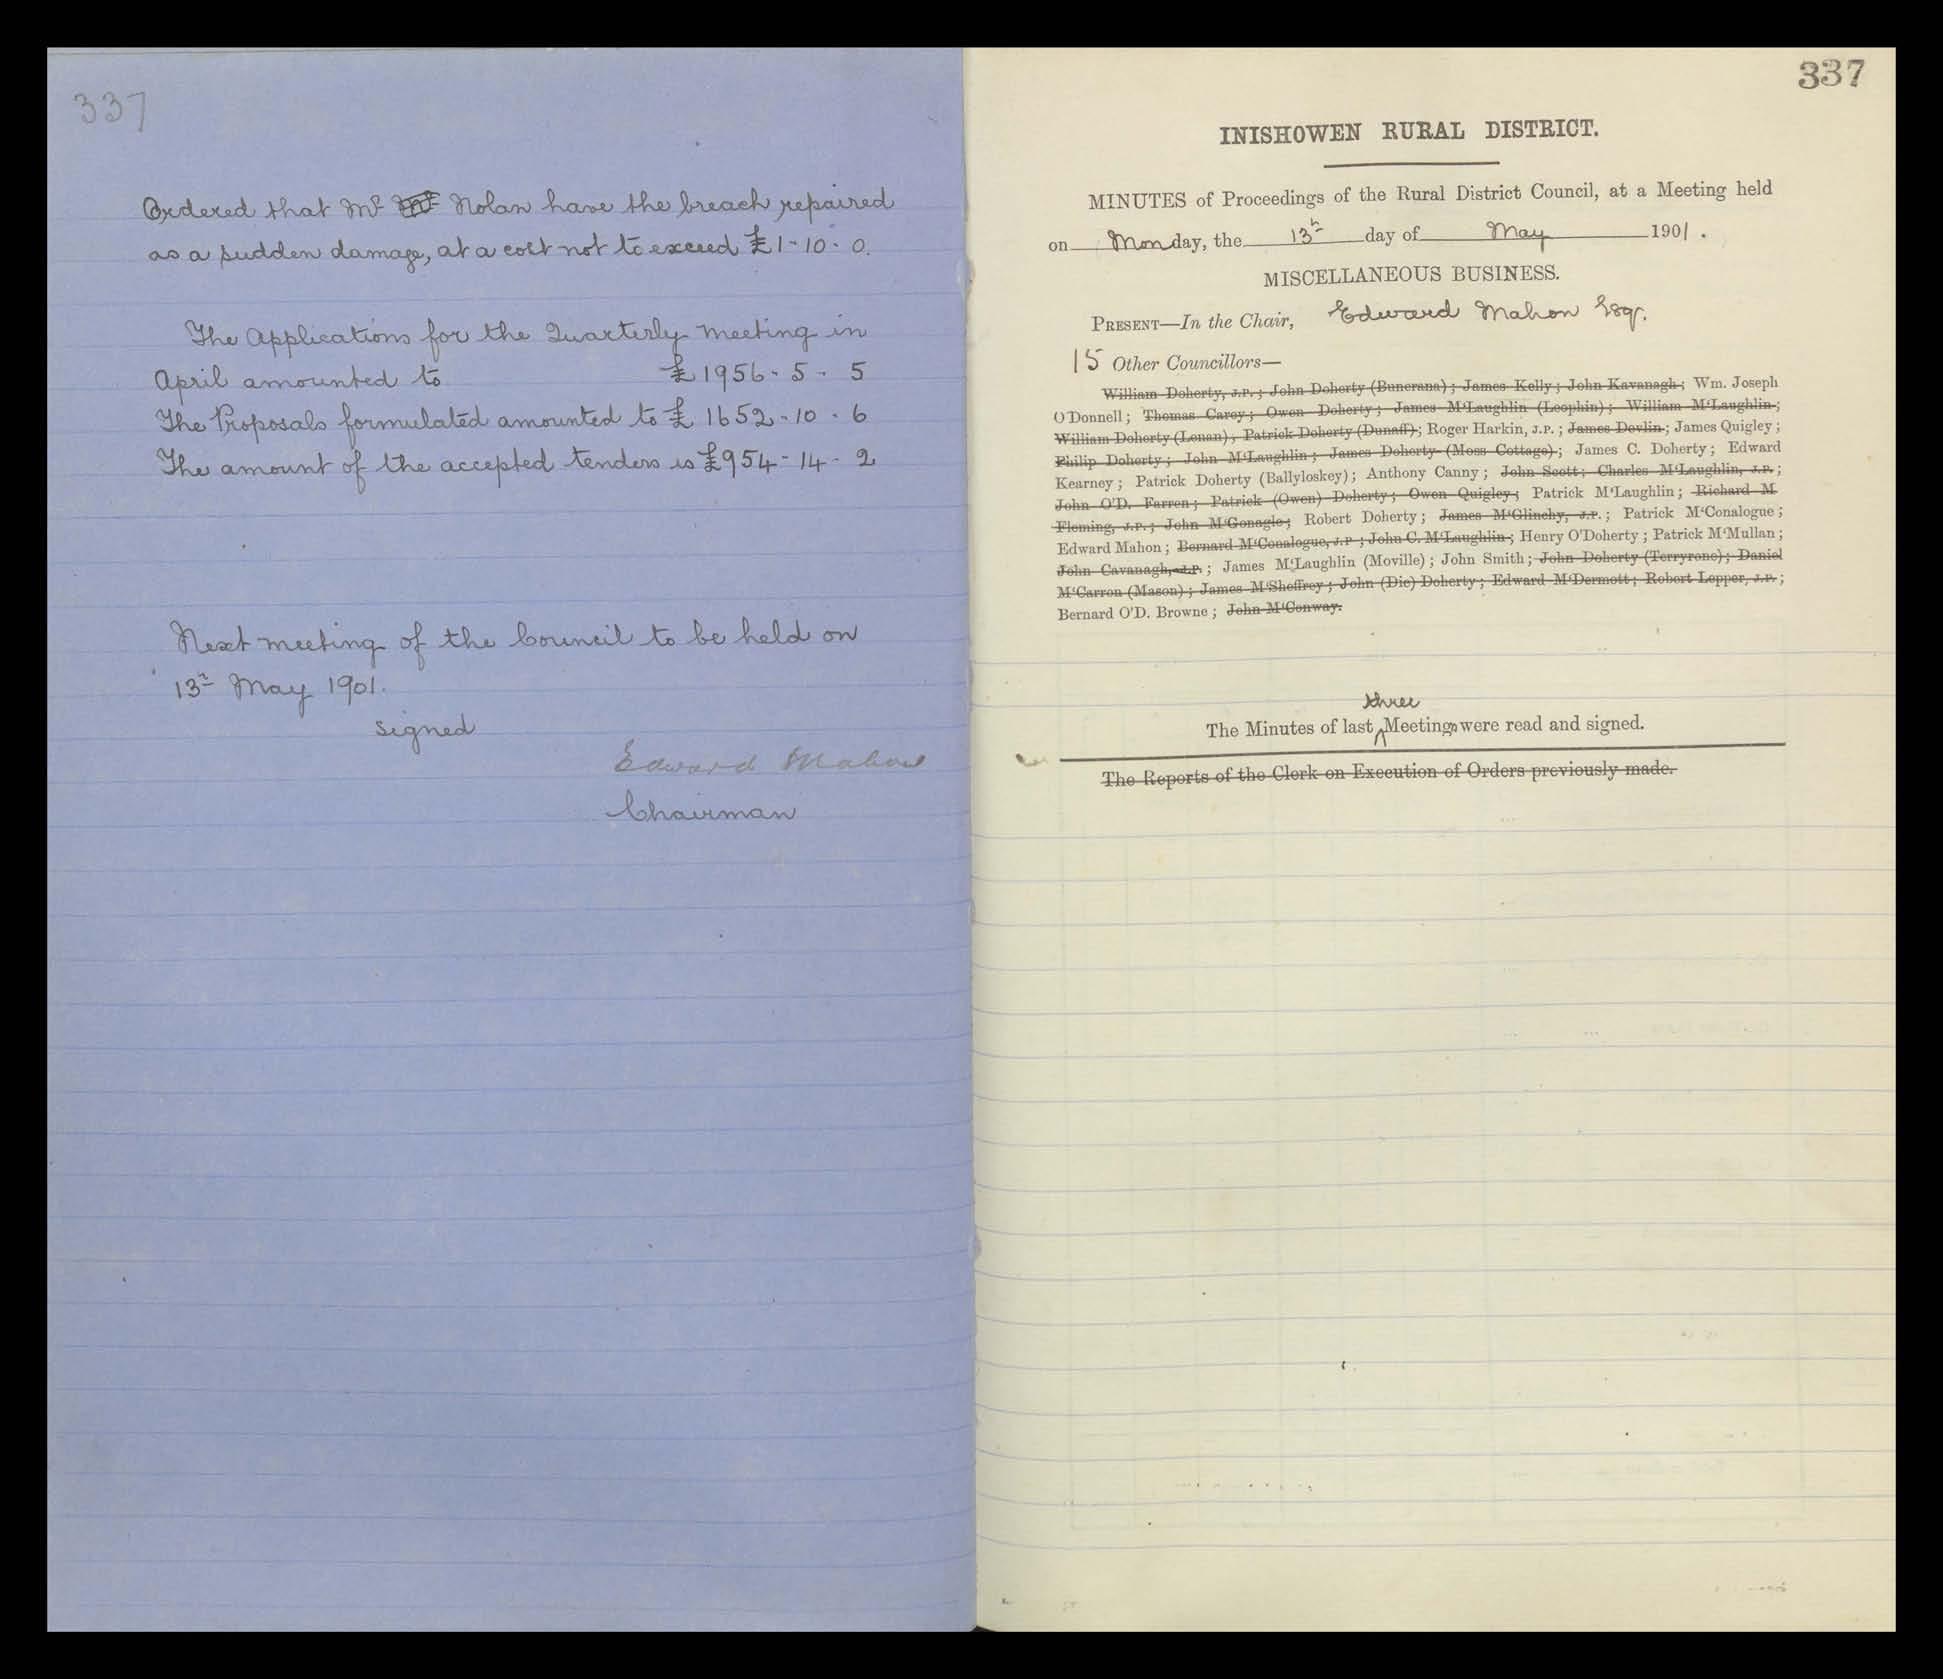 337
Ordered that Mr Nolan have the breach repaired
as a sudden damage, at a cost not to exceed £1-10-0.
The Applications for the Quarterly meeting in
April amounted to £1956-5-5
The Proposals formulated amounted to £1652-10-6
The amount of the accepted tenders is £954-14-2
Next meeting of the Council to be held on
13th May 1901.
signed
Edward Mahon
Chairman
337
INISHOWEN RURAL DISTRICT.
MINUTES of Proceedings of the Rural District Council, at a Meeting held
on Monday, the 13th day of May 1901.
MISCELLANEOUS BUSINESS.
PRESENT—In the Chair, Edward Mahon Esqr.
15 Other Councillors—
William Doherty, J.P.; John Doherty (Buncrana); James Kelly; John Kavanagh; Wm. Joseph
O'Donnell; Thomas Carey; Owen Doherty; James M'Laughlin (Leophin); William M'Laughlin;
William Doherty (Lenan); Patrick Doherty (Dunaff); Roger Harkin, J.P.; James Devlin; James Quigley;
Philip Doherty; John M'Laughlin; James Doherty (Moss Cottage); James C. Doherty; Edward
Kearney; Patrick Doherty (Ballyloskey); Anthony Canny; John Scott; Charles M'Laughlin, J.P.;
John O'D. Farren; Patrick (Owen) Doherty; Owen Quigley; Patrick M'Laughlin; Richard M
Fleming, J.P.; John M'Gonagle; Robert Doherty; James M'Glinchy, J.P.; Patrick M'Conalogue;
Edward Mahon; Bernard M'Conalogue, J.P; John C. M'Laughlin; Henry O'Doherty; Patrick M'Mullan;
John Cavanagh, J.P.; James M'Laughlin (Moville); John Smith; John Doherty (Terryrone); Daniel
M'Carron (Mason); James M'Sheffrey; John (Die) Doherty; Edward M'Dermott; Robert Lepper, J.P.;
Bernard O'D. Browne; John M'Conway.
three
The Minutes of last Meetings were read and signed.
The Reports of the Clerk on Execution of Orders previously made.